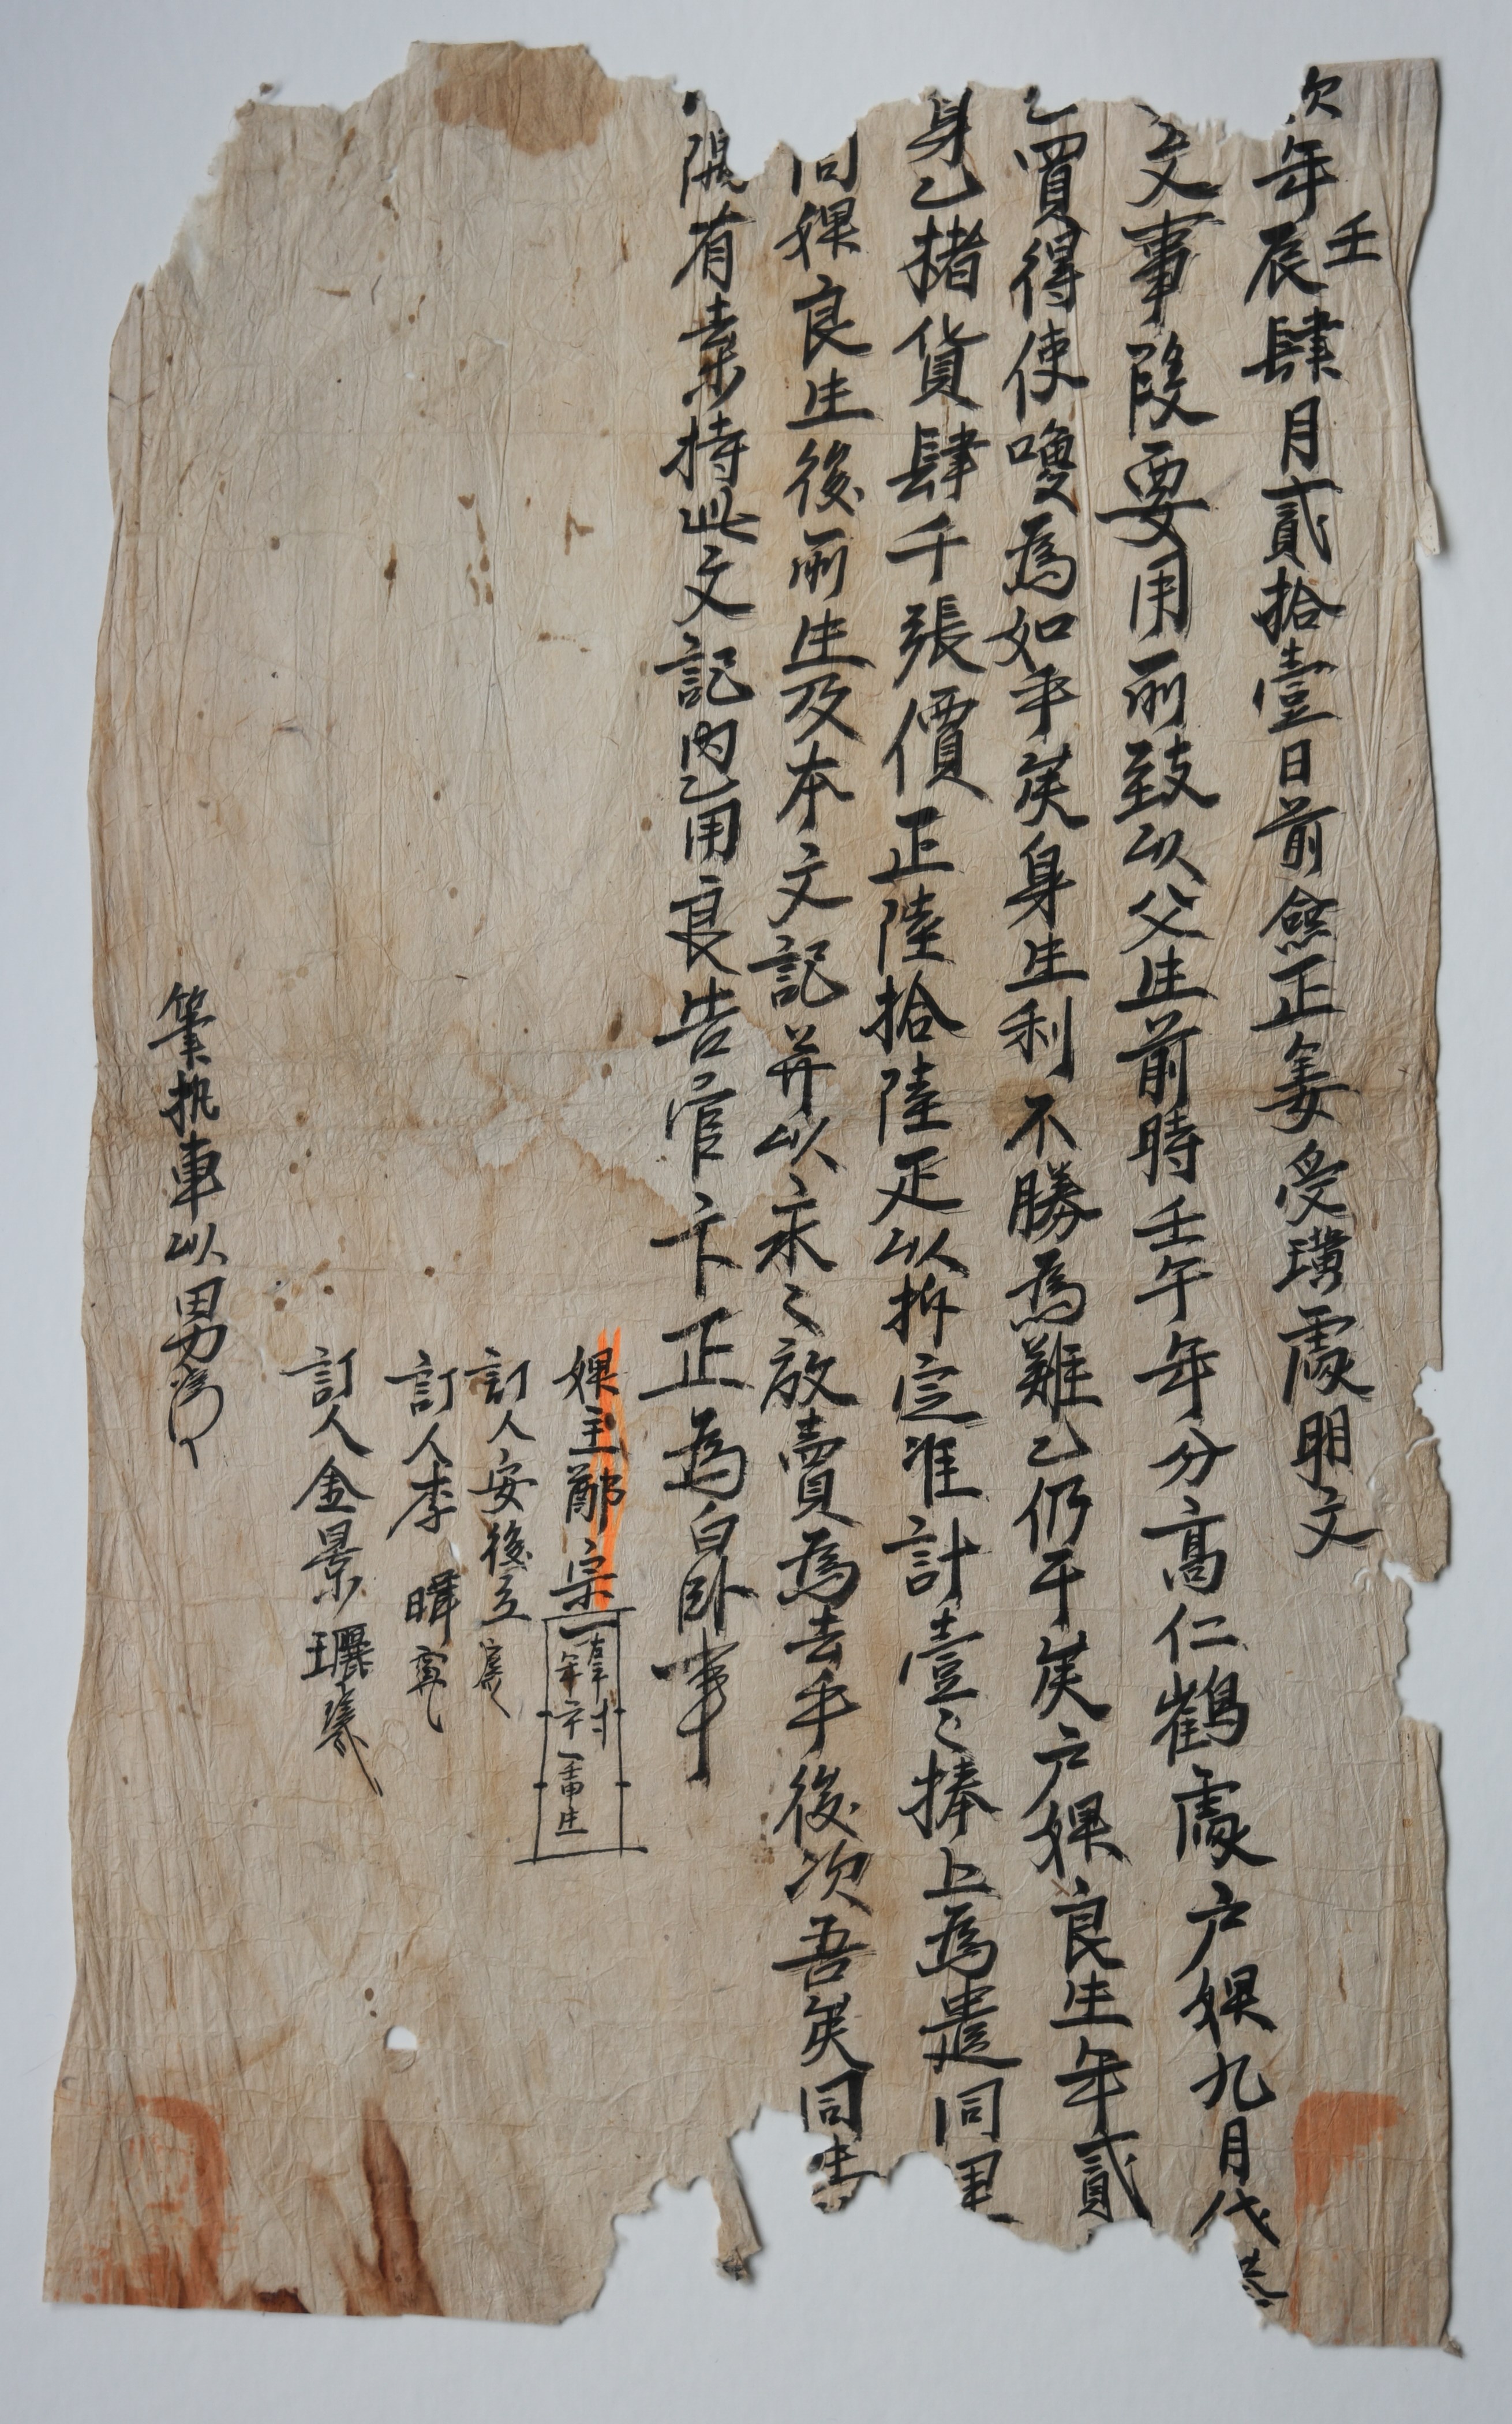 次年壬辰肆月貳拾壹日前僉正姜受璜處明文
文事段要用所致以父生前時壬午年分高仁鶴處户婢九月代
乙買得使嗅為如乎矣身生利不勝為難乙仍于矣户婢良生年貳
身乙楮貨肆千張價正陸拾陸疋以折定准計壹〻捧上為遣同
同婢良生後所生及本文記幷以永〻放賣為去乎後次吾矣同生
隅有去等持此文記內乙用良告官卞正為白臥事
婢主鄭宗 右手寸 年 壬申生
訂人安後立
訂人李暉
訂人金景
筆执車以男